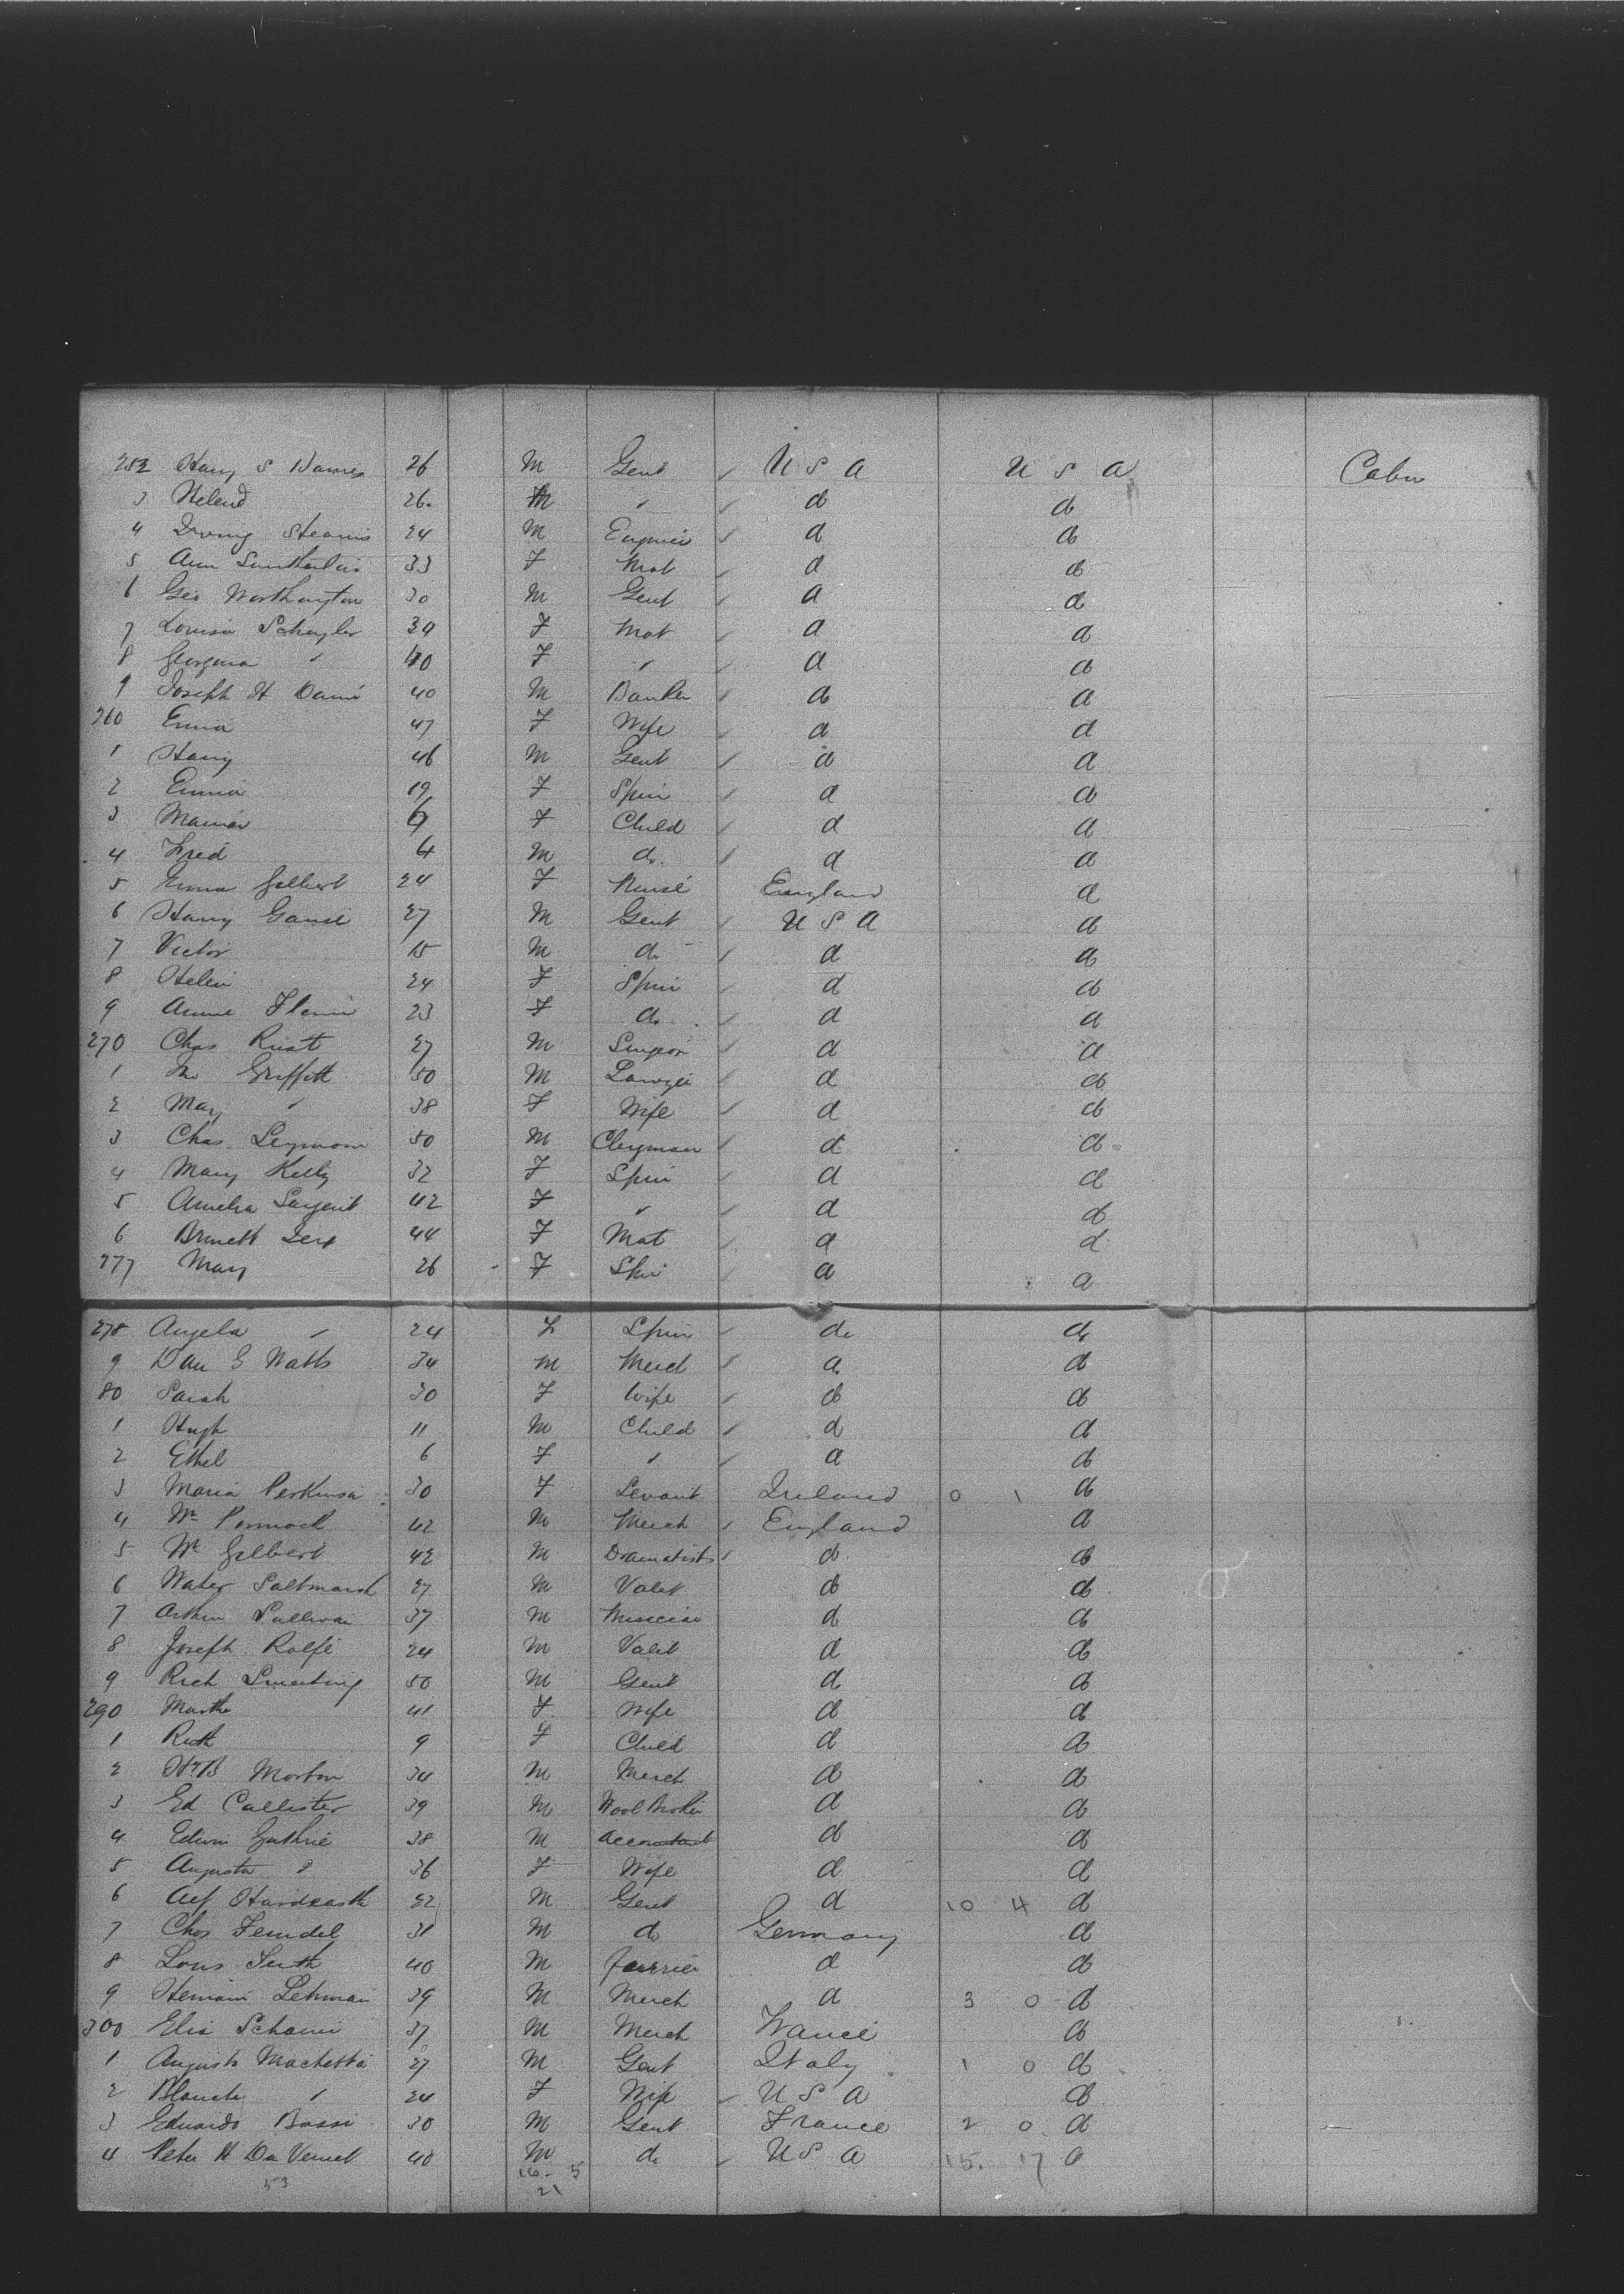 252 Harry S Dames 26 M Gent U S A U S A Cabin
3 Helend 26. M " d d
4 Irving Stearns 24 M Engineer d d
5 Ann 33 F Mat d d
6 Geo Worthington 30 M Gent d d
7 Louisa Schuyler 39 F Mat d d
8 Georgina " 40 F " d d
9 Joseph H 40 M Banker d d
260 Emma 47 F Wife d d
1 Harry 46 M Gent d d
2 Emma 19 F Spin d d
3 F Child d d
4 Fred 4 M do. d d
5 Emma Gilbert 24 F Nurse England d
6 Harry 27 M Gent U S A d
7 Victor 15 M do d d
8 Helen 24 F Spin d d
9 Annie 23 F do d d
270 Chas 27 M Surgeon d d
1 Jno Griffith 50 M Lawyer d d
2 Mary " 38 F Wife d d
3 Chas Seymour 50 M Clergyman d d
4 Mary Kelly 32 F Spin d d
5 Amelia Sargent 42 F " d d
6 44 F Mat d d
277 Mary 26 F Spin d d
278 Angela " 24 F Spin do do
9 Dan E Watts 34 M Merch d d
80 Sarah 30 F Wife d d
1 Hugh 11 M Child d d
2 Ethel 6 F " d d
3 Maria Perkinsa 30 F Servant Ireland 0 1 d
4 Wm 42 M Merch England d
5 Wm Gilbert 42 M Dramatist d d
6 Water Saltmarsh 27 M Valet d d
7 Arthur Sullivan 37 M Musician d d
8 Joseph Rolfe 24 M Valet d d
9 Rich 50 M Gent d d
290 Martha 41 F Wife d d
1 Ruth 9 F Child d d
2 Morton 34 M Merch d d
3 Ed Callister 39 M Wool Broker d d
4 Edwin Guthrie 38 M Accountant d d
5 Augusta " 36 F Wife d d
6 Alf Hardcastle 22 M Gent d 10 4 d
7 Chas 31 M do Germany d
8 Louis 40 M Furrier d d
9 Hermann Lehman 39 M Merch d 3 0 d
300 Elia 37 M Merch France d
1 Augusto Machetta 27 M Gent Italy 1 0 d
2 Blanche " 24 F Wife U S A d
3 Eduardo Bassi 30 M Gent France 2 0 d
4 Peter H Du Vernet 40 M do U S A 15. 17 d
53 16 - 5
21